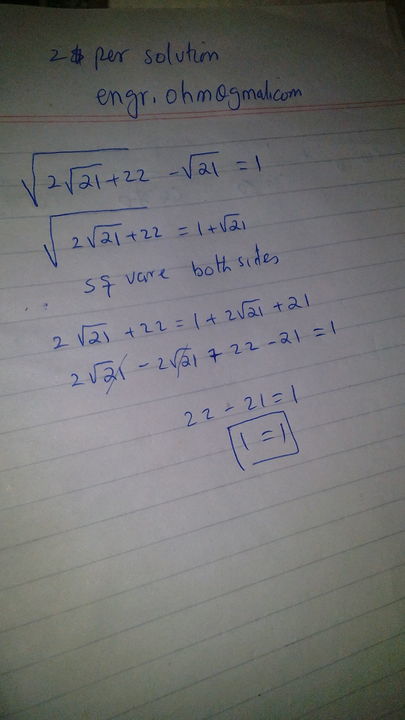 2$ per solution
engr.ohm@gmail.com
√(2√21+22) - √21 = 1
√(2√21+22) = 1+√21
square both sides
2√21 + 22 = 1 + 2√21 + 21
2√21 - 2√21 + 22 - 21 = 1
22 - 21 = 1
1 = 1